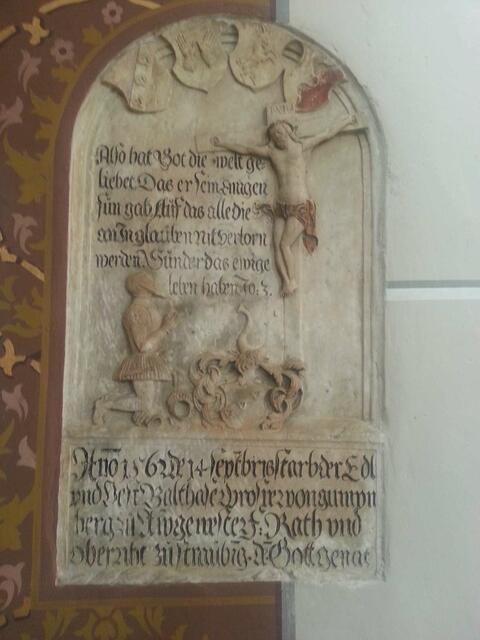 INRI
Also hat Got die welt ge
liebet Das er sein einigen
sun gab Auf das alle die
an In glauben nit verlorn
werden Sunder das ewige
leben haben Jo: 3.
Ano 1562 de 14 septbris starb der Edl
vnd Vest von gumpn
berg zu F: Rath vnd
zu straubing. d Gott genat